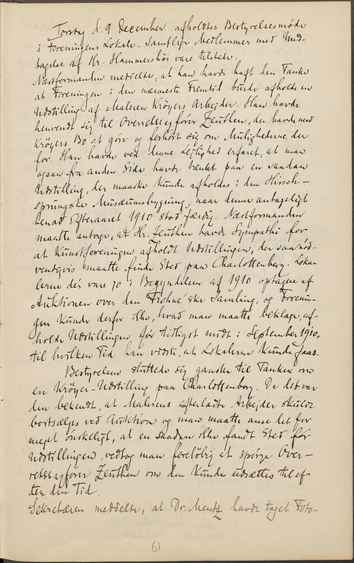 Torsdag d. 9 December afholdtes Bestyrelsesmøde
i Foreningens Lokale. Samtlige Medlemmer med Und-
tagelse af Hr. Hammershøi vare tilstede.
Næstformanden meddelte, at han havde haft den Tanke
at Foreningen i den nærmeste Fremtid burde afholde en
Udstilling af Maleren Krøyers Arbejder. Han havde
henvendt sig til Overretssagfører Zeuthen, der havde med
Krøyers Bo at gøre og forhørt sig om Mulighederne der-
for. Han havde ved denne Lejlighed erfaret, at man
ogsaa fra anden Side havde tænkt paa en saadan
Udstilling, der maaske kunde afholdes i den Hirsch-
sprungske Musæumsbygning, naar denne antagelig
henad Efteraaret 1910 stod færdig. Næstformanden
maatte antage, at Hr. Zeuthen havde Sympathi for
at Kunstforeningen afholdt Udstillingen, der saa nød-
vendigvis maatte finde Sted paa Charlottenborg. Loka-
lerne der vare jo i Begyndelsen af 1910 optagne af
Auktionen over den Samling, og Forenin-
gen kunde derfor ikke, hvad man maatte beklage, af-
holde Udstillingen før tidligst midt i September 1910,
til hvilken Tid han vidste, at Lokalerne kunde faas.
Bestyrelsen sluttede sig ganske til Tanken om
en Krøyer-Udstilling paa Charlottenborg. Da det var
den bekendt, at Malerens efterladte Arbejder skulde
bortsælges ved Auktion og man maatte anse det for
meget ønskeligt, at en saadan ikke fandt Sted før
Udstillingen, vedtog man foreløbig at spørge Over-
retssagfører Zeuthen om den kunde udsættes til ef-
ter den Tid.
Sekretæren meddelte, at Dr. havde taget Foto-